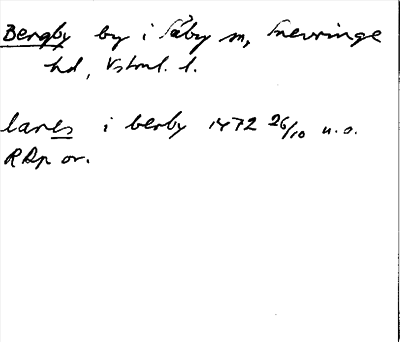 Bergby by i Säby sn, Snevringe
hd, Vstml. l.
lares i berby 1472 26/10 u.o.
RAp or.